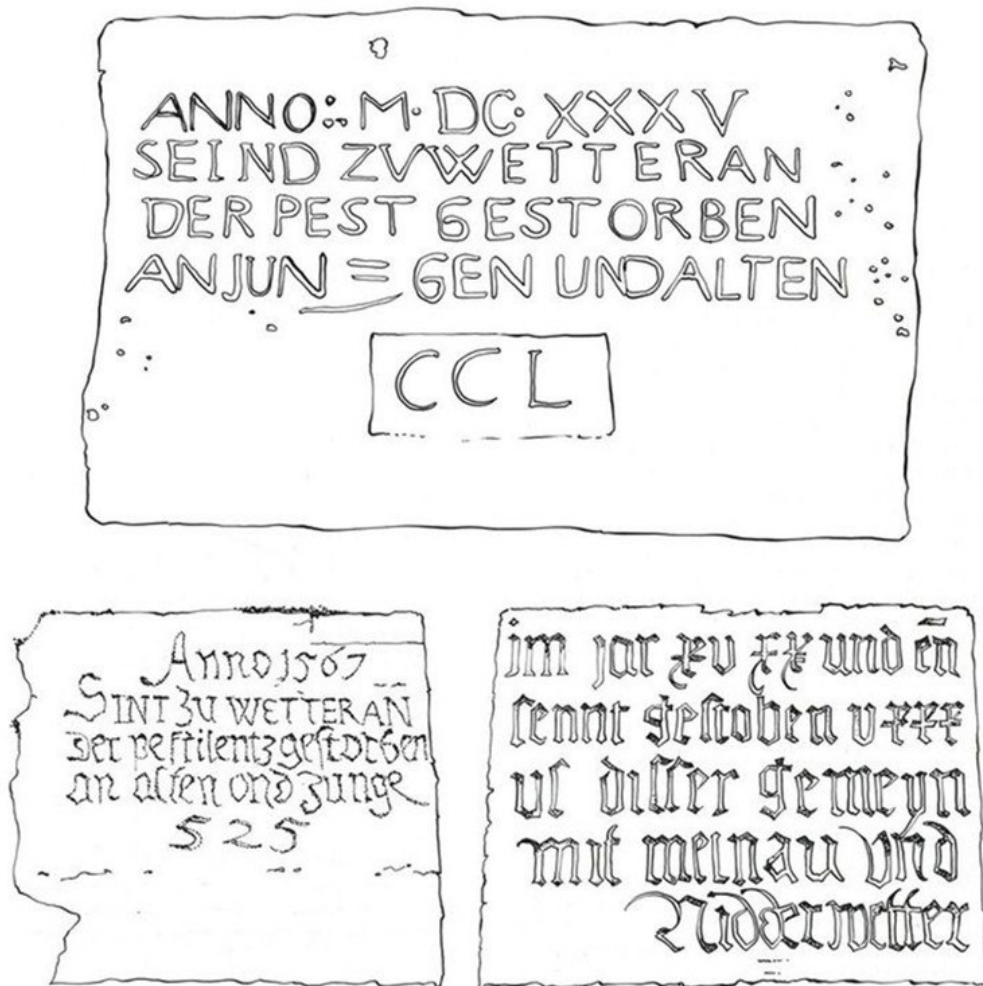 ANNO: M· DC· XXXV
SEIND ZVWETTERAN
DER PEST GESTORBEN
ANJUN = GEN UNDALTEN
CCL
Anno 1567
SINT ZU WETTERAN
Der pestilentz gestorben
an alten ond Junge
525
jm jar xv xx und en
sennt gestoben v xxx
us disser gemeyn
mit meinau vnd
Nidderwetter